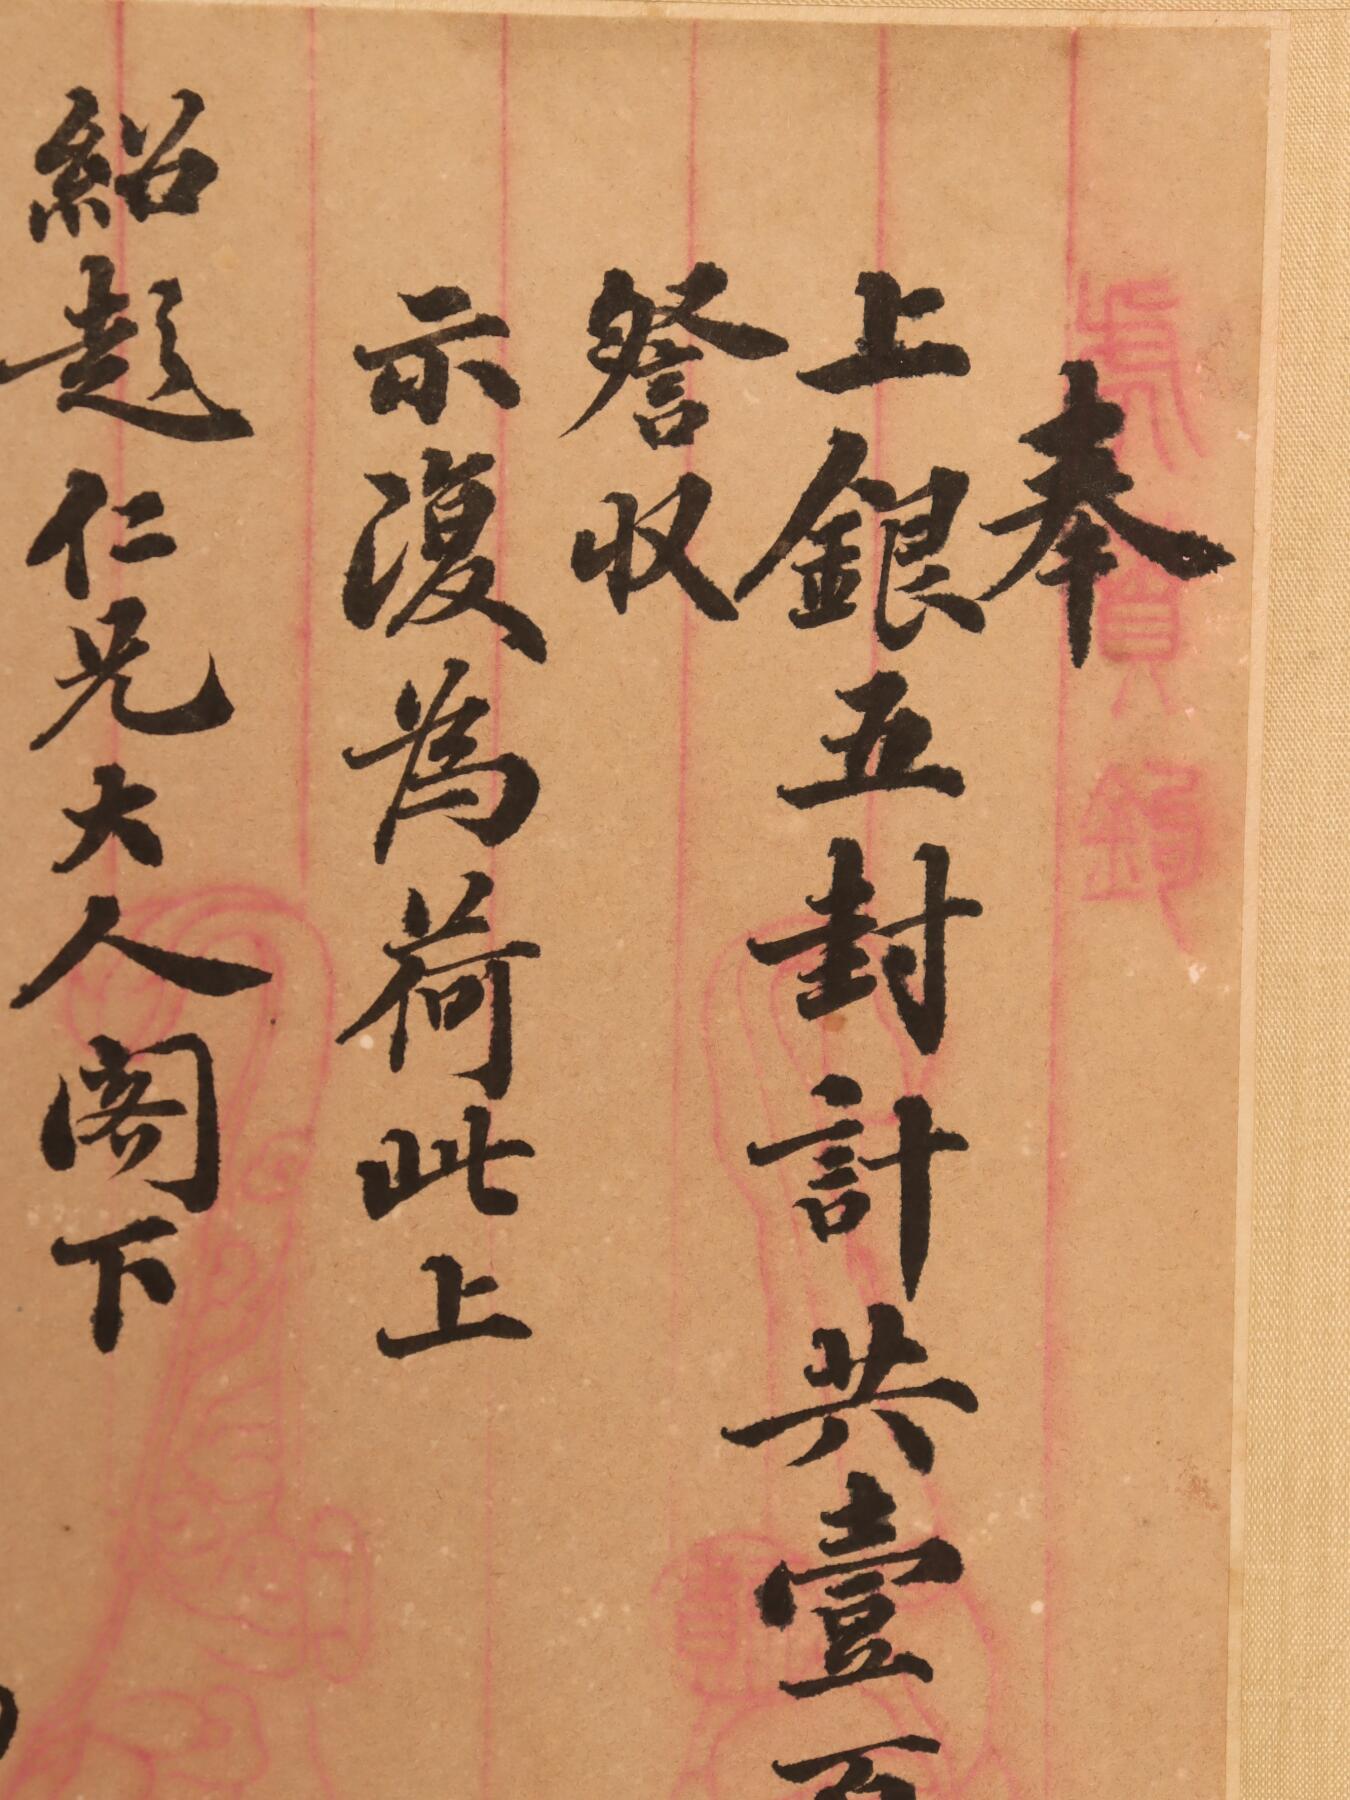 奉
上銀五封計共壹百
詧收
示復為荷此上
紹仁兄大人閣下